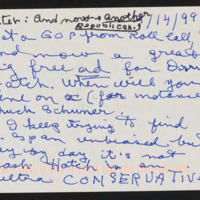 : And now another
Republican!
/14/99
at a GOP from Roll Call,
and now a great
ig free ad for Dru
atch. When will you
ne on a (for instance
huck Schumer.
I keep trying to find
-Span unbiased but
ay by day it's not
ash. Hatch is an
ultra CONSERVATIVE